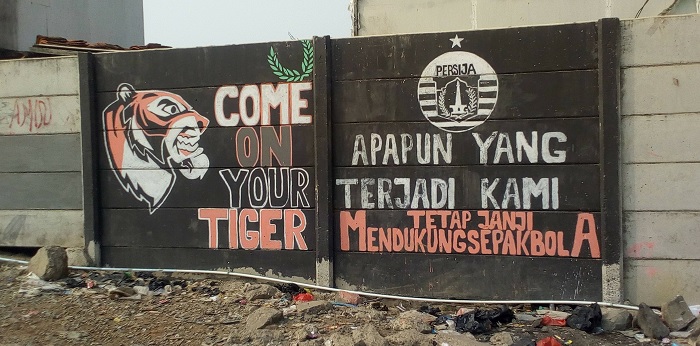 COME
ON
YOUR
TIGER
PERSIJA
APAPUN YANG
TERJADI KAMI
TETAP JANJI
MENDUKUNGSEPAKBOLA